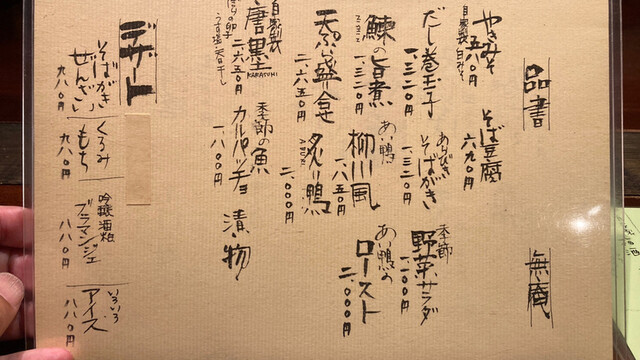 品書
無庵
やきみそ
自家製 白みそ
五八〇円
そば豆腐
六九〇円
だし巻玉子
一、三二〇円
あらびき
そばがき
一、三二〇円
季節
野菜サラダ
一、一〇〇円
鰊の旨煮
一、三二〇円
あい鴨
柳川風
一、八五〇円
あい鴨の
ロースト
二、〇〇〇円
天ぷら盛り合せ
二、六五〇円
炙り鴨
二、〇〇〇円
自家製
唐墨
KARASUMI
二、六五〇円
ぼらの卵
うす塩 天日干し
季節の魚
カルパッチョ
一、八〇〇円
漬け物
デザート
そばがき
ぜんざい
九八〇円
くるみ
もち
九八〇円
吟醸酒粕
ブラマンジェ
八八〇円
いろいろ
アイス
八八〇円